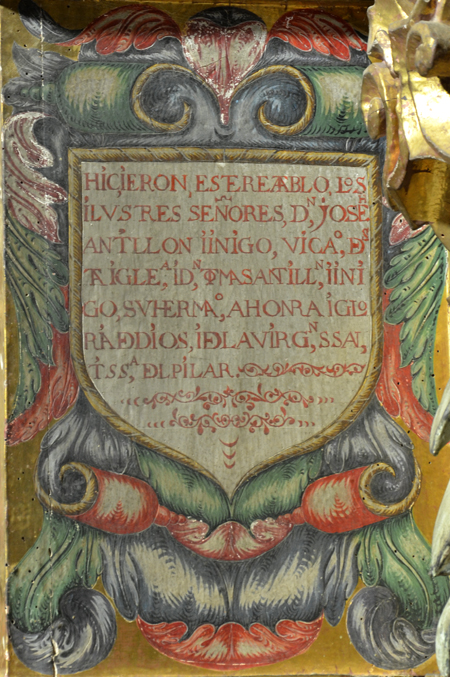 HIÇIERON, ESTE REABLO, LOS
ILVSTRES SEÑORES, Dᴺ JOSE
ANTILLON IINIGO, VICAᴼ, D
IGLEᴬ, IDᴺ, TOMAS ANTILLᴺ, IINI
GO, SV HERMAᴼ, A HONRA I GLO
RA D DIOS, I DLA VIRGᴺ, SSAT,
SSᴬ, DL PILAR